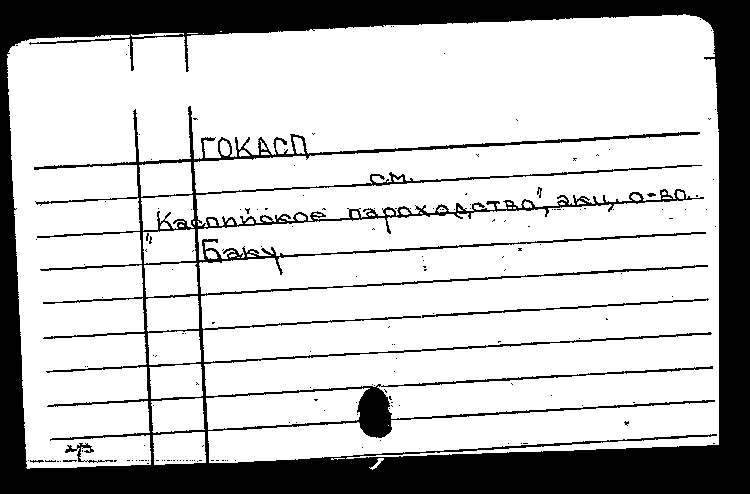 ГОКАСП
см.
„Каспийское пароходство", акц. о-во.
Баку.